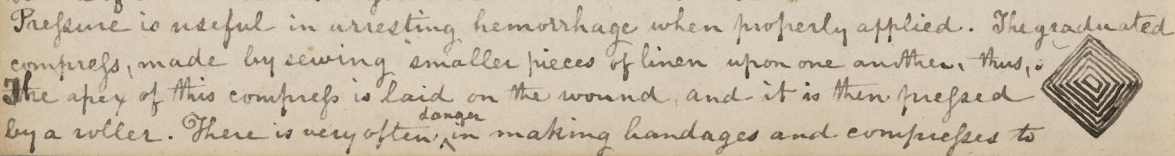 Pressure is useful in arresting hemorrhage when properly applied. The graduated
compress, made by sewing smaller pieces of linen upon one another, thus,
The apex of this compress is laid on the wound, and it is then pressed
by a roller. There is very often danger in making bandages and compresses to